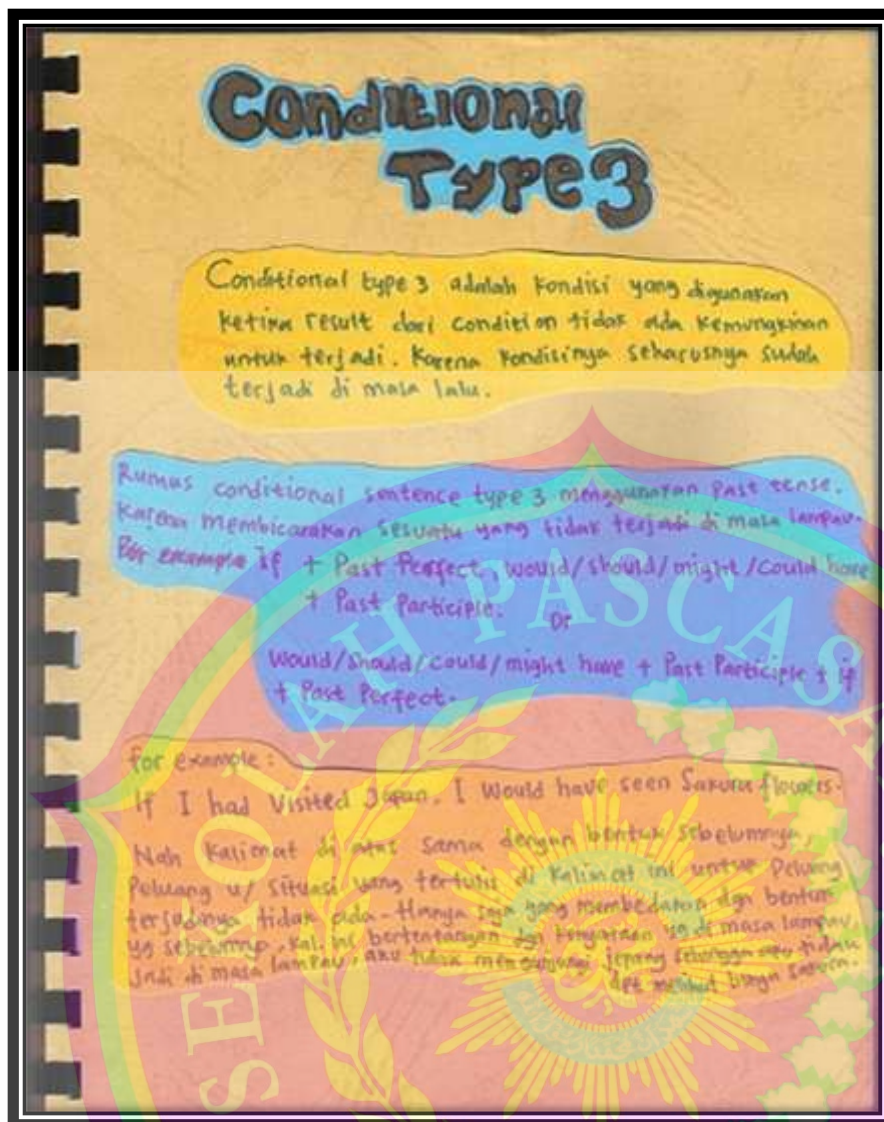 Conditional
Type 3
Conditional type 3 adalah kondisi yang digunakan
ketika result dari condition tidak ada kemungkinan
untuk terjadi. Karena kondisinya seharusnya sudah
terjadi di masa lalu.
Rumus conditional sentence type 3 menggunakan Past tense.
Karena membicarakan sesuatu yang tidak terjadi di masa lampau.
For example If + Past Perfect, would/should/might/could have
+ Past Participle. Or
Would/Should/could/might have + Past Participle + if
+ Past Perfect.
for example:
If I had Visited Japan, I would have seen Sakura flowers.
Nah Kalimat di atas sama dengan bentuk sebelumnya,
Peluang u/ situasi yang tertulis di kalimat ini untuk Peluang
terjadinya tidak ada. Hanya saja yang membedakan dgn bentuk
yg sebelumnya, kal. ini bertentangan dgn kenyataan yg di masa lampau,
Jadi di masa lampau, aku tidak mengunjungi jepang sehingga aku tidak
dpt melihat bunga sakura.
SEKOLAH PASCASA